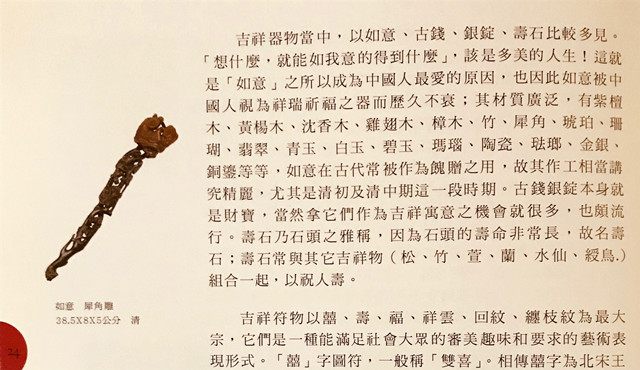 吉祥器物當中，以如意、古錢、銀錠、壽石比較多見。
「想什麼，就能如我意的得到什麼」，該是多美的人生！這就
是「如意」之所以成為中國人最愛的原因，也因此如意被中
國人視為祥瑞祈福之器而歷久不衰；其材質廣泛，有紫檀
木、黃楊木、沈香木、雞翅木、樟木、竹、犀角、琥珀、珊
瑚、翡翠、青玉、白玉、碧玉、瑪瑙、陶瓷、琺瑯、金銀、
銅鎏等等，如意在古代常被作為餽贈之用，故其作工相當講
究精麗，尤其是清初及清中期這一段時期。古錢銀錠本身就
是財寶，當然拿它們作為吉祥寓意之機會就很多，也頗流
行。壽石乃石頭之雅稱，因為石頭的壽命非常長，故名壽
石；壽石常與其它吉祥物（松、竹、萱、蘭、水仙、綬鳥.）
組合一起，以祝人壽。
吉祥符物以囍、壽、福、祥雲、回紋、纏枝紋為最大
宗，它們是一種能滿足社會大眾的審美趣味和要求的藝術表
現形式。「囍」字圖符，一般稱「雙喜」。相傳囍字為北宋王
如意　犀角雕
38.5X8X5公分　清
24